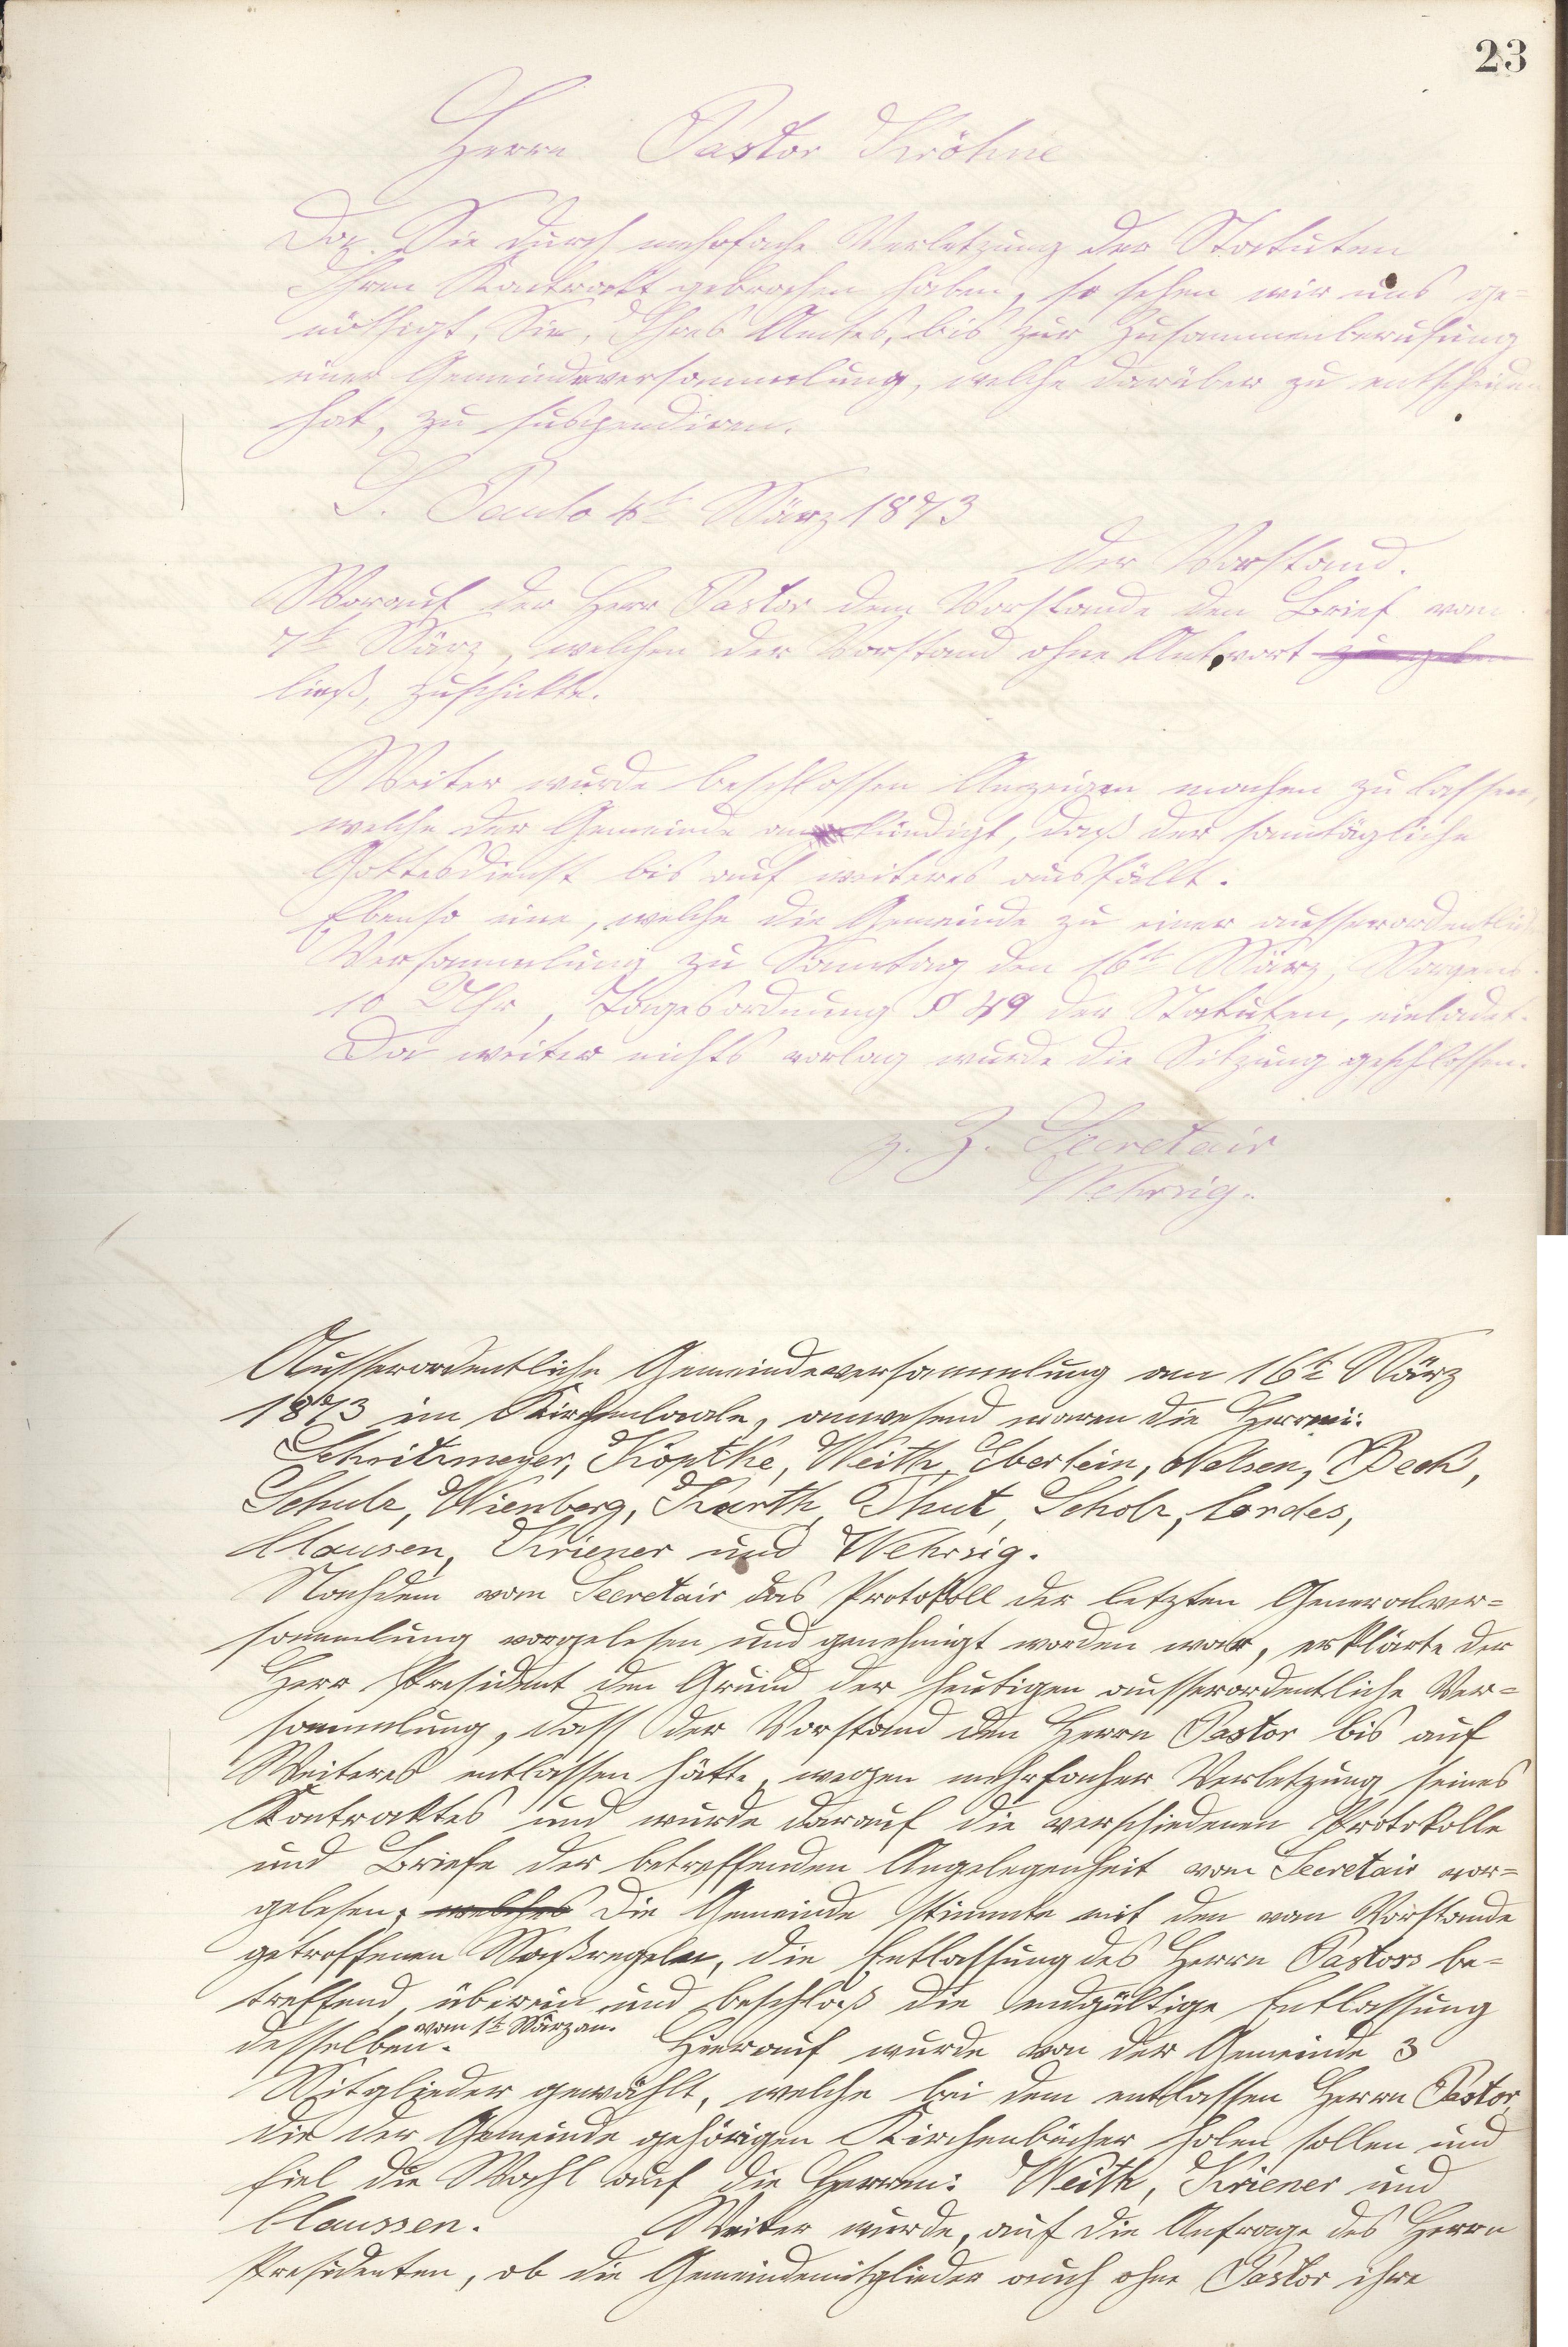 23
Herrn Pastor Kröhne
Da Sie durch mehrfache Verletzung der Statuten
Ihren Kontrakt gebrochen haben, so sehen wir uns ge=
nöthigt, Sie, Ihres Amtes, bis zur Zusammenberufung
einer Gemeindeversammlung, welche darüber zu entscheiden
hat, zu suspendiren.
S. Paulo 4t März 1873
Der Vorstand.
Worauf der Herr Pastor dem Vorstande den Brief vom
7t März, welchen der Vorstand ohne Antwort zu geben
ließ, zuschickte.
Weiter wurde beschlossen Anzeigen machen zu lassen,
welche der Gemeinde ankündigt, daß der sonntägliche
Gottesdienst bis auf weiteres ausfällt.
Ebenso eine, welche die Gemeinde zu einer ausserordentlich
Versammlung zu Sonntag den 16t März, Morgens
10 Uhr, Tagesordnung § 49 der Statuten, einladet.
Da weiter nichts vorlag wurde die Sitzung geschlossen.
z. Z. Secretair
Wehrsig.
Ausserordentliche Gemeindeversammlung am 16t März
1873 im Kirchenlocale, anwesend waren die Herren:
Schritzmeyer, Köpthe, Weith, Eberlein, Nelsen, Beck,
Schulz, Wienberg, Kurth, Thut, Scholz, Cordes,
Clausen, Kriener und Wehrsig.
Nachdem vom Secretair das Protokoll der letzten Generalver=
sammlung vorgelesen und genehmigt worden war, erklärte der
Herr President den Grund der heutigen ausserordentliche Ver=
sammlung, dass der Vorstand den Herrn Pastor bis auf
Weiteres entlassen hätte, wegen mehrfacher Verletzung seines
Kontraktes und wurde darauf die verschiedenen Protokolle
und Briefe der betreffenden Angelegenheit vom Secretair vor=
gelesen, welches die Gemeinde stimmte mit den vom Vorstande
getroffenen Maßregeln, die Entlassung des Herrn Pastors be=
treffend, überein und beschloß die endgültige Entlassung
desselben. vom 1t März an. Hierauf wurde von der Gemeinde 3
Mitglieder gewählt, welche bei dem entlassen Herrn Pastor,
die der Gemeinde gehörigen Kirchenbücher holen sollen und
fiel die Wahl auf die Herren: Weith, Kriener und
Claussen. Weiter wurde, auf die Anfrage des Herrn
Presidenten, ob die Gemeindemitglieder auch ohne Pastor ihre